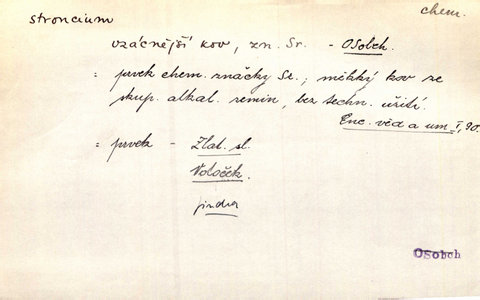 chem.
stroncium
vzácnější kov, zn. Sr. - Osobch.
= prvek chem. značky Sr.; měkký kov ze
skup. alkal. zemin, bez techn. užití.
Enc. věd a um. I, 90.
= prvek - Zlat. sl.
Votoček.
jindra
Osobch